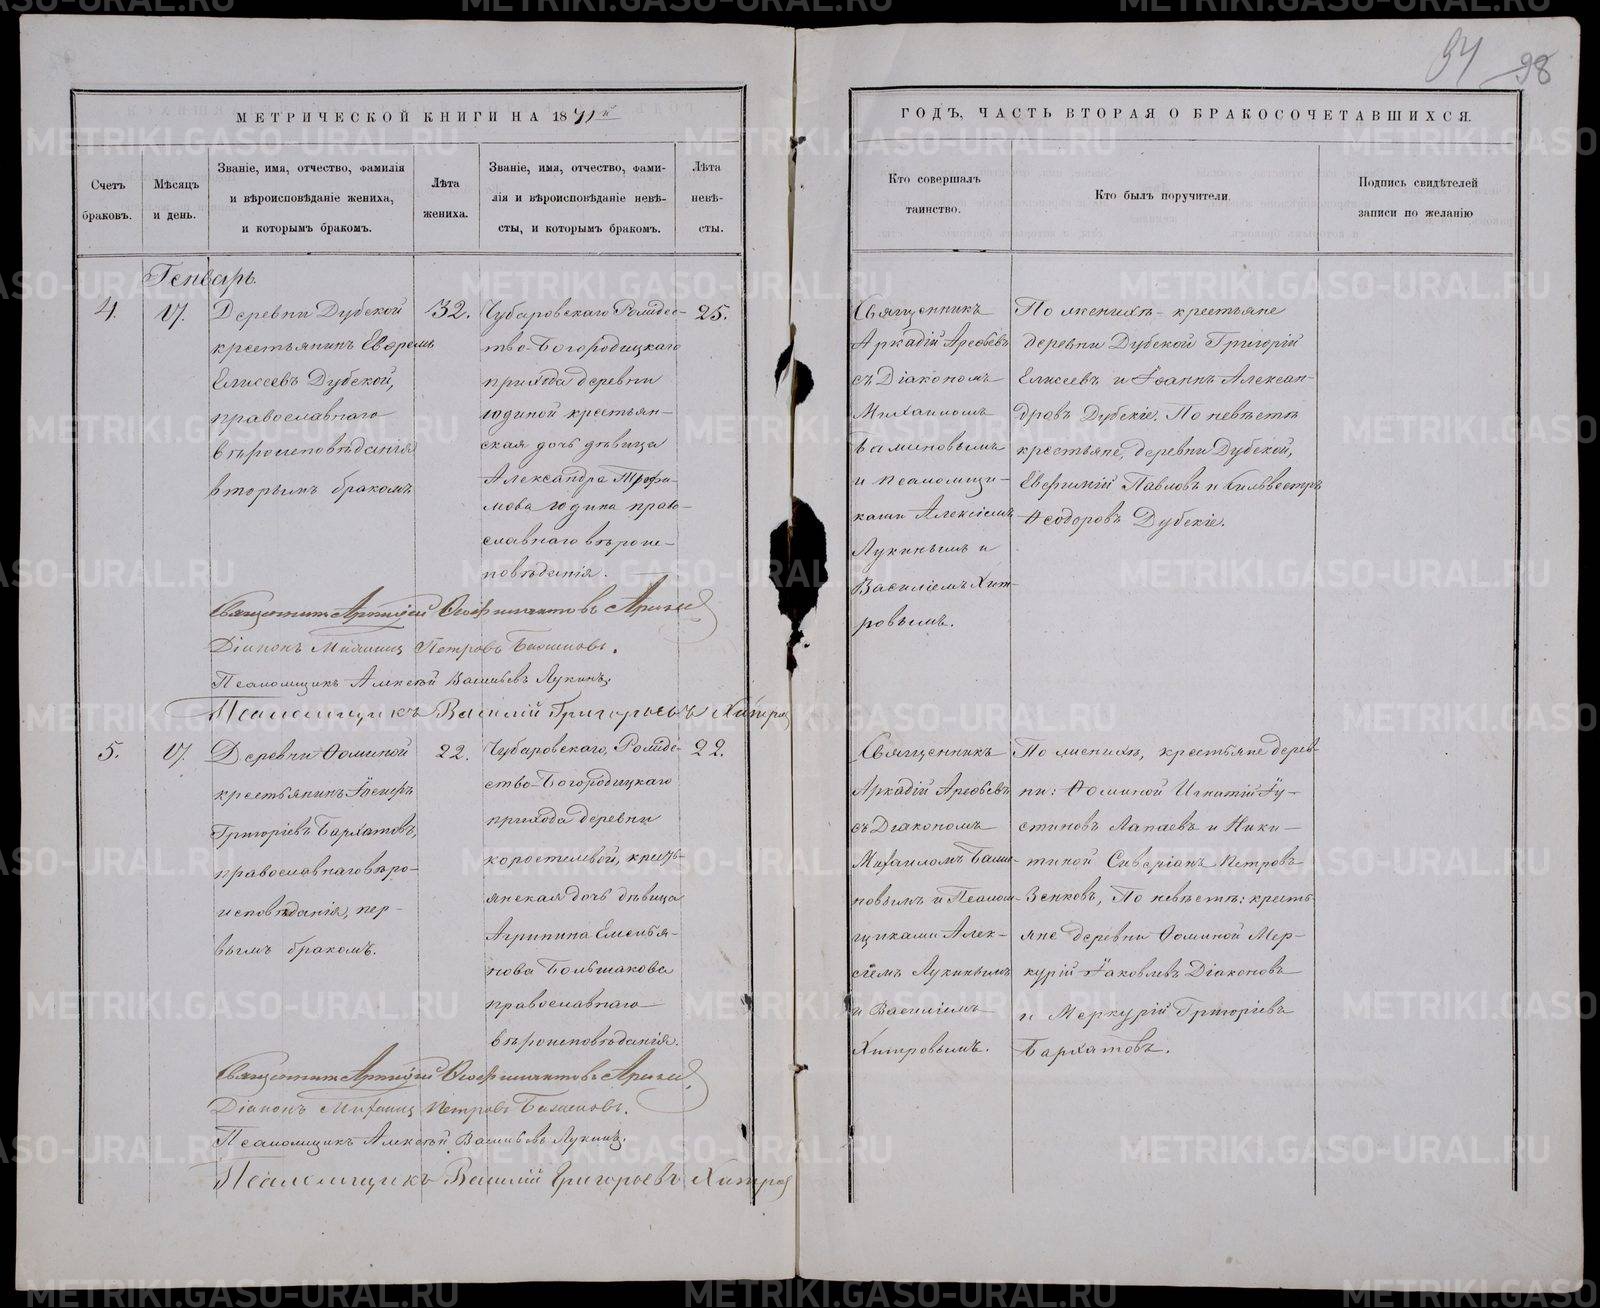 94 98
МЕТРИЧЕСКОЙ КНИГИ НА 1871й
ГОДЪ, ЧАСТЬ ВТОРАЯ О БРАКОСОЧЕТАВШИХСЯ.
Счетъ
браковъ.
Мѣсяцъ
и день.
Званіе, имя, отчество, фамилія
и вѣроисповѣданіе жениха,
и которымъ бракомъ.
Лѣта
жениха.
Званіе, имя, отчество, фами-
лія и вѣроисповѣданіе невѣ-
сты, и которымъ бракомъ.
Лѣта
невѣ-
сты.
Кто совершалъ
таинство.
Кто былъ поручители.
Подпись свидѣтелей
записи по желанію
Генварь.
4.
17.
Деревни Дубской
крестьянинъ Евфремъ
Елисеевъ Дубской,
православнаго
вѣроисповѣданія
вторымъ бракомъ
32.
Чубаровскаго Рождес-
тво-Богородицкаго
прихода деревни
Юдиной крестьян-
ская дочь дѣвица
Александра Трофи-
мова Юдина право-
славнаго вѣроис-
повѣданія.
25.
Священникъ
Аркадій Арефьевъ
съ Діакономъ
Михаиломъ
Баженовымъ
и псаломщи-
ками Алексіемъ
Лукинымъ и
Василіемъ Хит-
ровымъ.
По женихѣ - крестьяне
деревни Дубской Григорій
Елисеевъ и Іоаннъ Алексан-
дровъ Дубскіе. По невѣстѣ
крестьяне, деревни Дубской,
Евфимій Павловъ и Сильвестръ
Ѳеодоровъ Дубскіе.
Священникъ Аркадій
Діаконъ Михаилъ Петровъ Баженовъ.
Псаломщикъ Алексѣй Васильевъ Лукинъ.
Псаломщикъ Василій Григорьевъ Хитров
5.
17.
Деревни Ѳоминой
крестьянинъ Іосифъ
Григоріевъ Бархатовъ,
православнаго вѣро-
исповѣданія, пер-
вымъ бракомъ.
22.
Чубаровскаго, Рожде-
ство-Богородицкаго
прихода деревни
Коростелевой, кресть-
янская дочь дѣвица
Агрипина Емелья-
нова Большакова
православнаго
вѣроисповѣданія.
22.
Священникъ
Аркадій Арефьевъ
съ Діакономъ
Михаиломъ Баже-
новымъ и Псалом-
щиками Алек-
сіемъ Лукинымъ
и Василіемъ
Хитровымъ.
По женихѣ, крестьяне дерев-
ни: Ѳоминой Игнатій Іу-
стиновъ Лапаевъ и Ники-
тиной Северіанъ Петровъ
Зенковъ, По невѣстѣ: кресть-
яне деревни Ѳоминой Мер-
курій Іаковлевъ Діаконовъ
и Меркурій Григоріевъ
Бархатовъ.
Священникъ Аркадій
Діаконъ Михаилъ Петровъ Баженовъ.
Псаломщикъ Алексѣй Васильевъ Лукинъ.
Псаломщикъ Василій Григорьевъ Хитров
METRIKI.GASO-URAL.RU